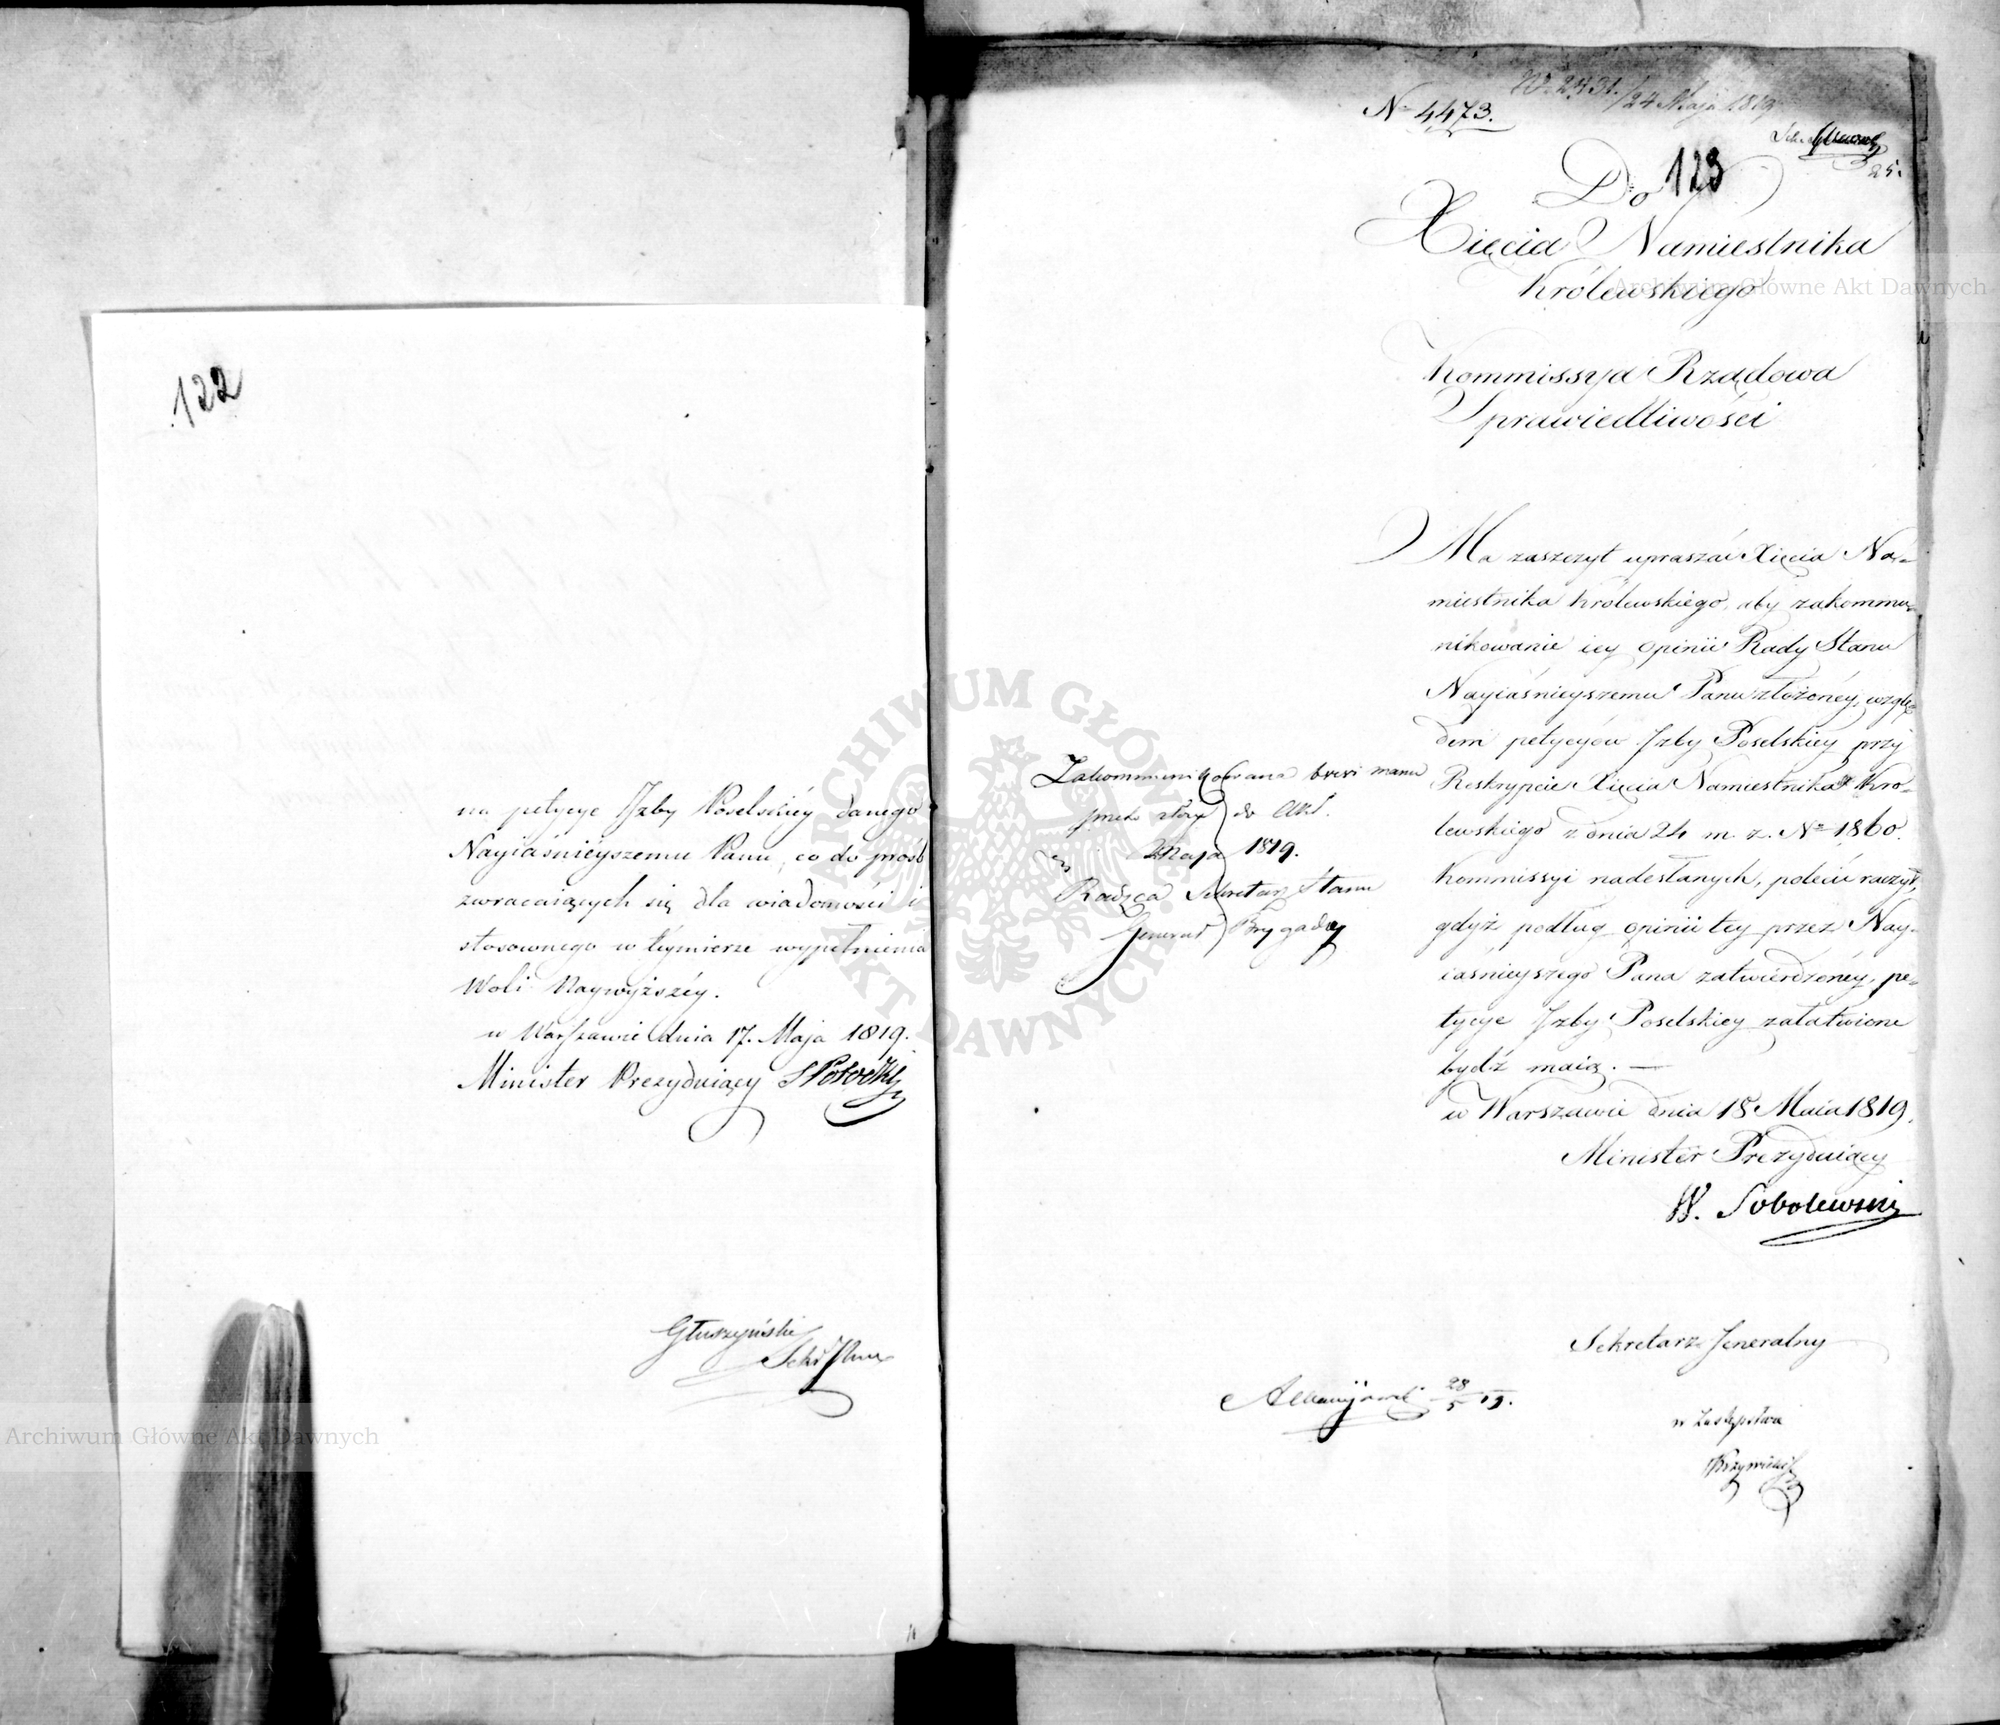 122
na petycye Jzby Poselskiéy danego
Nayiaśnieyszemu Panu, co do prósb
zwracaiących się dla wiadomości i
stosownego w téymierze wypełnienia
Woli Naywyższéy.
w Warszawie dnia 17. Maja 1819.
Minister Prezyduiący S Potocki
Głuszyński
N= 4473.
24 Maja 1819
25.
Do
123
Xięcia Namiestnika
Królewskiego
Kommissya Rządowa
Sprawiedliwości
Ma zaszczyt upraszać Xięcia Na-
miestnika Królewskiego, aby zakommu-
nikowanie iey opinii Rady Stanu
Nayiaśnieyszemu Panu złożoney, wzglę-
dem petycyów Jzby Poselskiey przy
Reskrypcie Xięcia Namiestnika Kró-
lewskiego z dnia 24 m. z. N= 1860.
Kommissyi nadesłanych, polecić raczył,
gdyż podług opinii tey przez Nay-
iaśnieyszego Pana zatwierdzoney, pe-
tycye Jzby Poselskiey załatwione
bydź maią. —
w Warszawie dnia 18 Maia 1819.
Minister Prezyduiący
W. Sobolewski
Zakommunikowana brevi manu
do Akt.
Maja 1819.
Radzca Sekretarz Stanu
Generał Brygady
Sekretarz Jeneralny
28/5 19.
w Zastępstwie
Archiwum Główne Akt Dawnych
Archiwum Główne Akt Dawnych
ARCHIWUM GŁÓWNE
AKT DAWNYCH